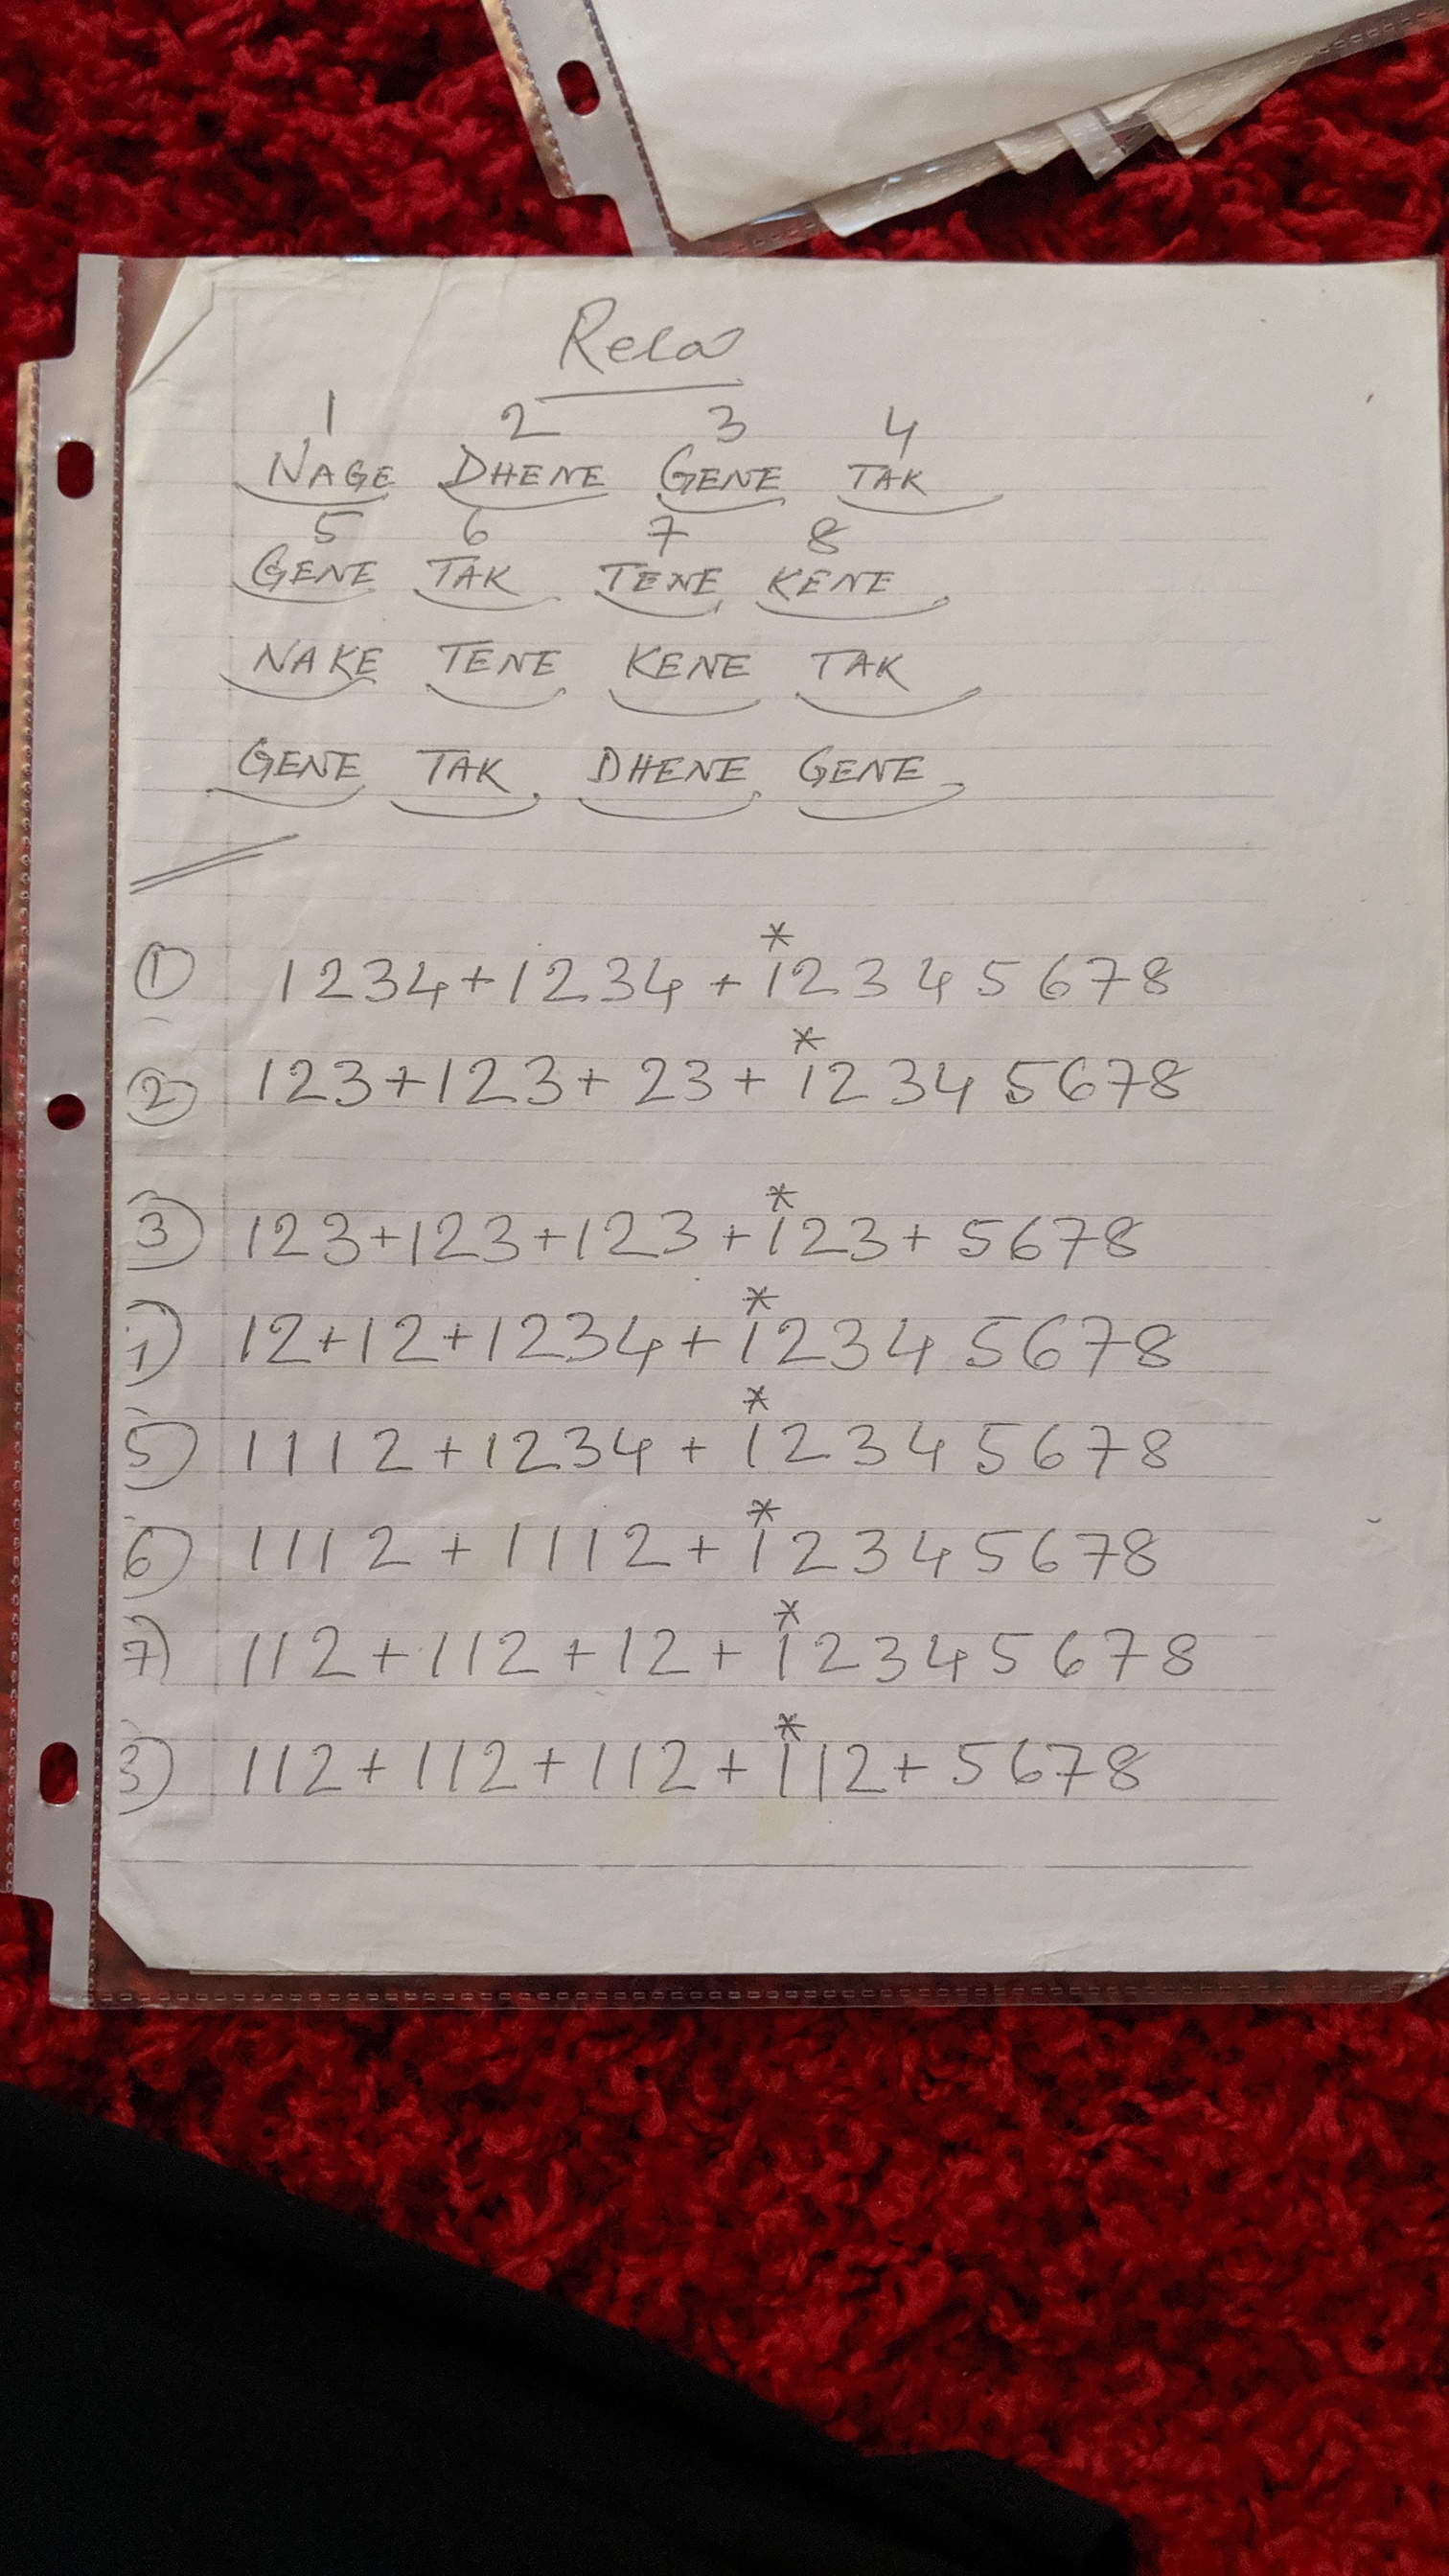 Rela
1 2 3 4
NAGE DHENE GENE TAK
5 6 7 8
GENE TAK TENE KENE
NAKE TENE KENE TAK
GENE TAK DHENE GENE
*
① 1234+1234+12345678
*
② 123+123+23+12345678
*
3) 123+123+123+123+5678
*
1) 12+12+1234+12345678
*
5) 1112+1234+12345678
*
6) 1112+1112+12345678
*
7) 112+112+12+12345678
*
3) 112+112+112+112+5678